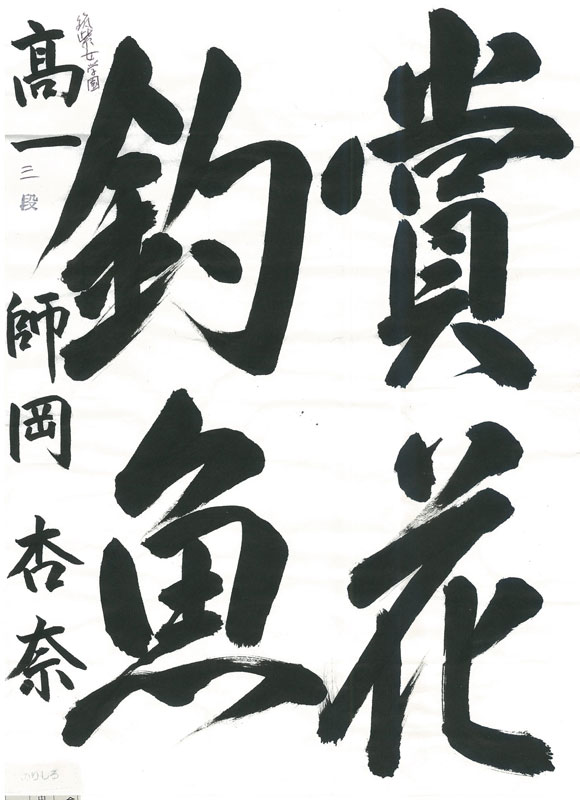 賞花
釣魚
筑紫女学園
高一 師岡 杏奈
三段
のりしろ